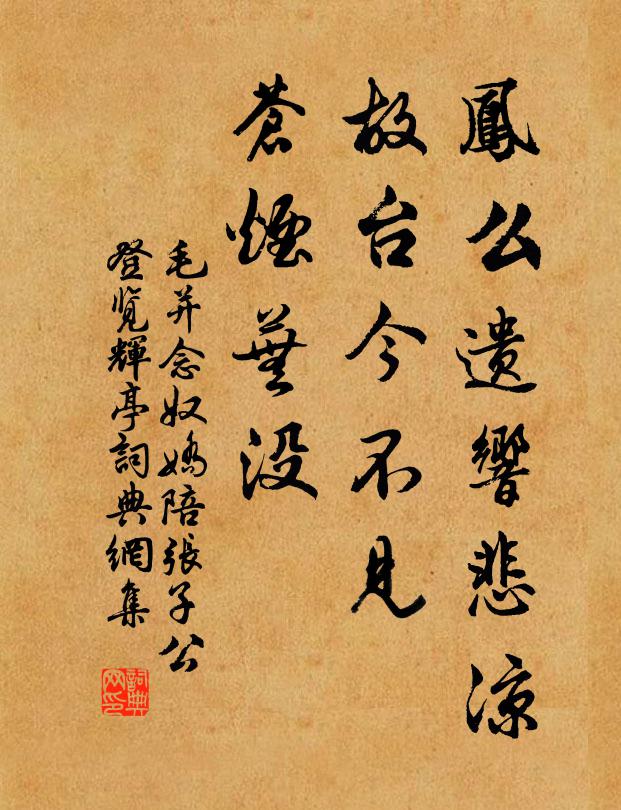 鳳么遗響悲凉
故台今不見
蒼煙蕪没
毛并念奴嬌陪張子公
登覽輝亭詞典網集
詞典网印